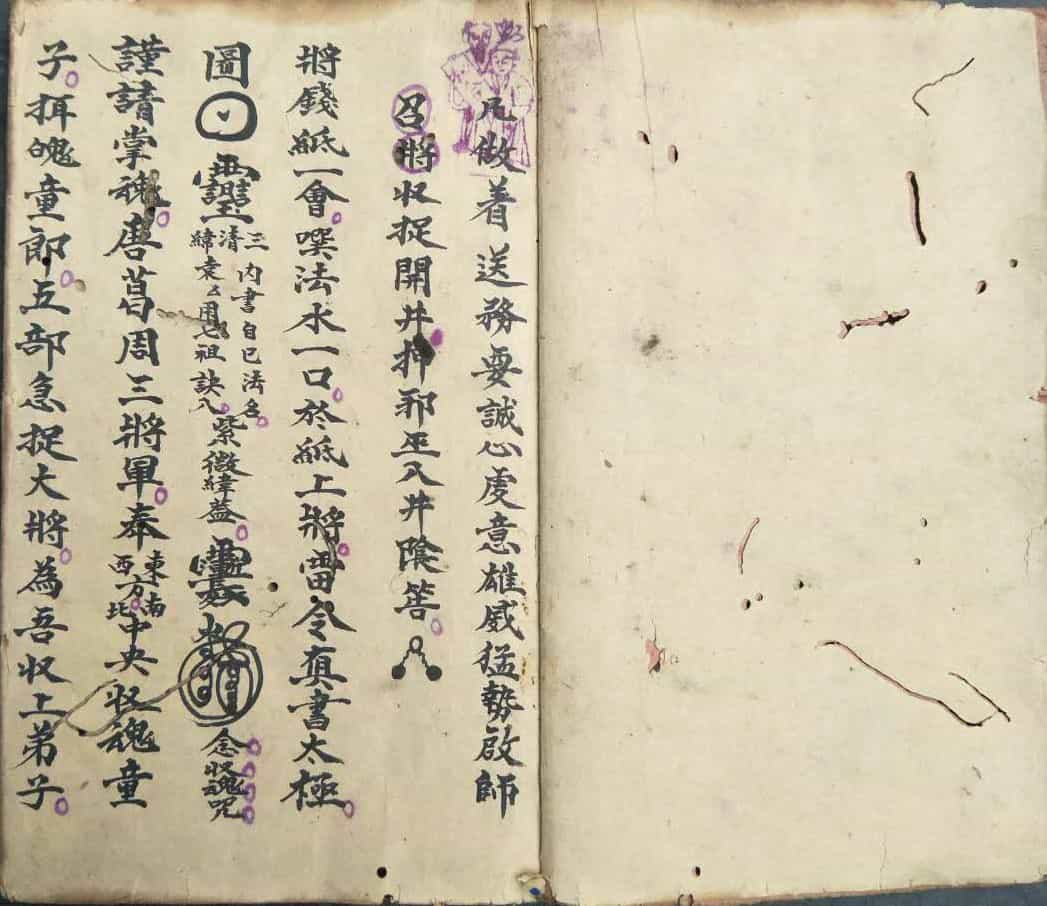 凡做着送務要誠心虔意雄威猛勢啟師
召將收捉開井押邪巫入井陰筶
將錢紙一會噀法水一口於紙上將雷令真書太極
圖
三清諱
內書自己法名
用七祖訣八
紫微諱蓋
念收魂咒
謹請掌魂唐葛周三將軍奉東南西北方中央収魂童
子拜魂童郎五部急捉大將為吾収上弟子